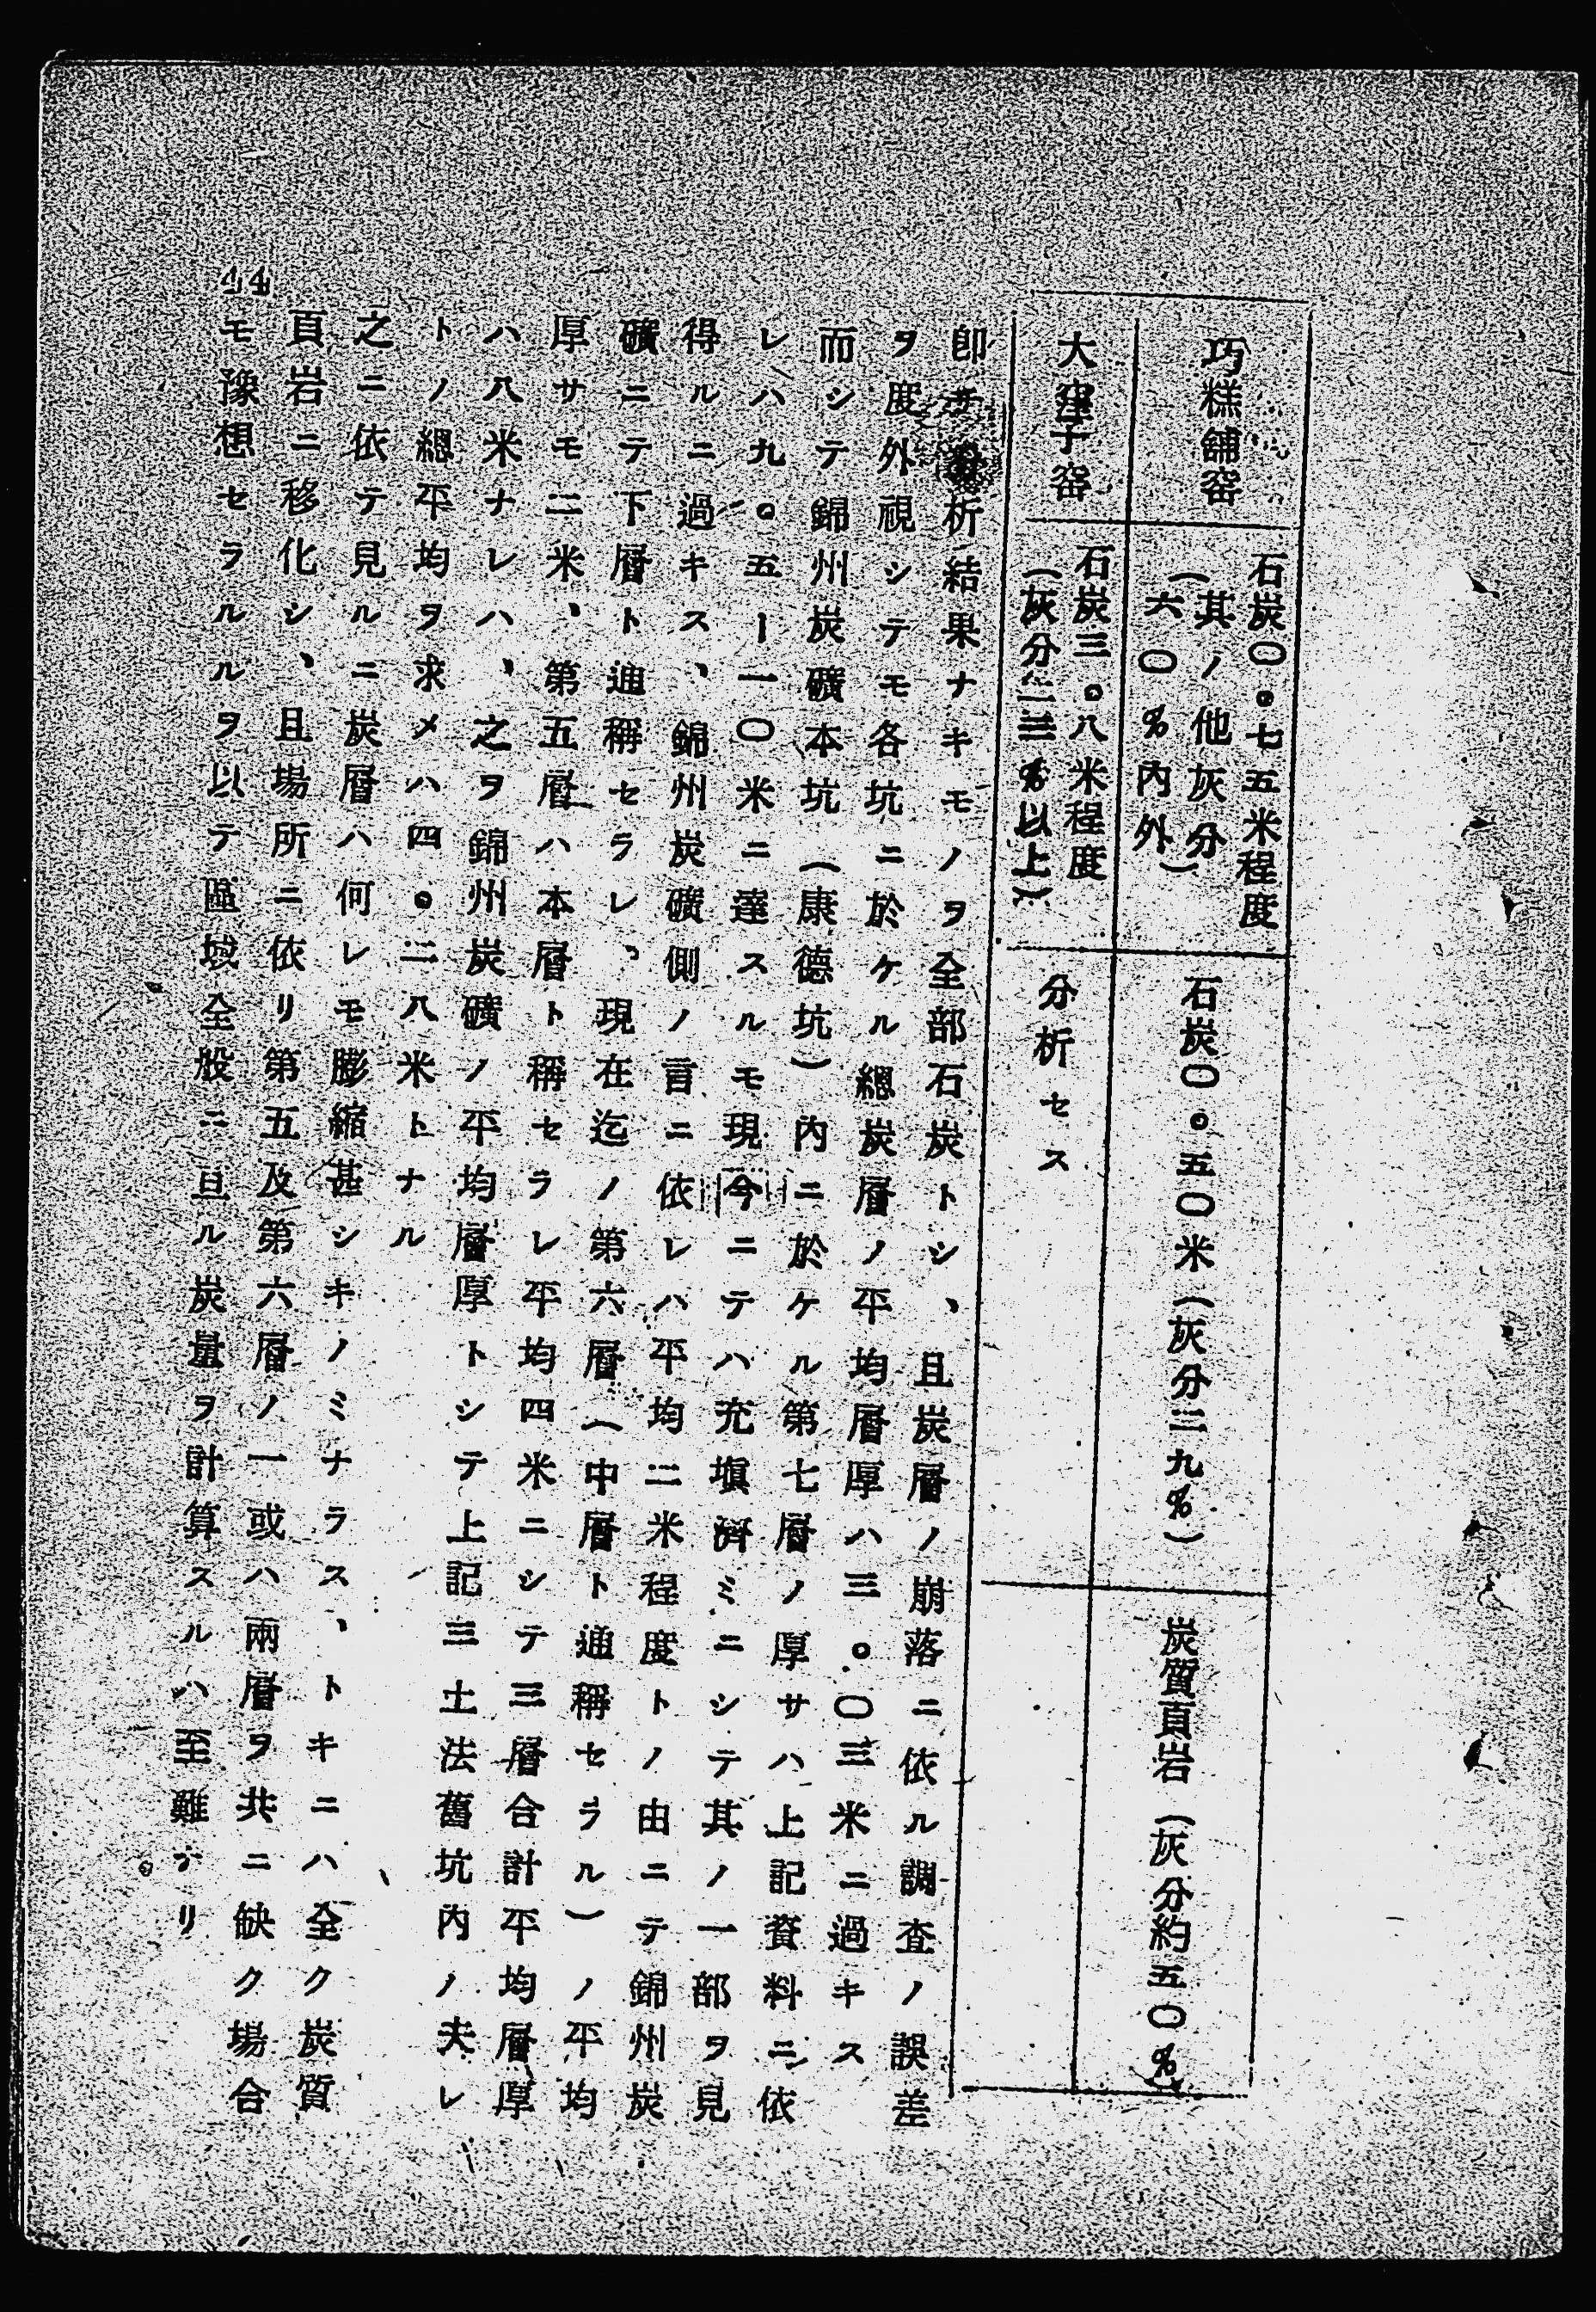 巧糕舗窑
石炭〇。七五米程度
(其ノ他灰分
六〇%內外)
石炭〇。五〇米(灰分三九%)
炭質頁岩(灰分約五〇%
大窪子窑
石炭三。八米程度
(灰分三三%以上)
分析セス
卽チ 析結果ナキモノヲ全部石炭トシ、且炭層ノ崩落ニ依ル調査ノ誤差
ヲ度外視シテモ各坑ニ於ケル總炭層ノ平均層厚ハ三。〇三米ニ過キス
而シテ錦州炭礦本坑(康德坑)內ニ於ケル第七層ノ厚サハ上記資料ニ依
レハ九。五ー一〇米ニ達スルモ現今ニテハ充塡濟ミニシテ其ノ一部ヲ見
得ルニ過キス、錦州炭礦側ノ言ニ依レハ平均二米程度トノ由ニテ錦州炭
礦ニテ下層ト通稱セラレ、現在迄ノ第六層(中層ト通稱セラル)ノ平均
厚サモ二米、第五層ハ本層ト稱セラレ平均四米ニシテ三層合計平均層厚
ハ八米ナレハ、之ヲ錦州炭礦ノ平均層厚トシテ上記三土法舊坑內ノ夫レ
トノ總平均ヲ求メハ四。二八米トナル
之ニ依テ見ルニ炭層ハ何レモ膨縮甚シキノミナラス、トキニハ全ク炭質
頁岩ニ移化シ、且場所ニ依リ第五及第六層ノ一或ハ兩層ヲ共ニ缺ク場合
モ豫想セラルルヲ以テ區域全般ニ亘ル炭量ヲ計算スルハ至難ナリ
44